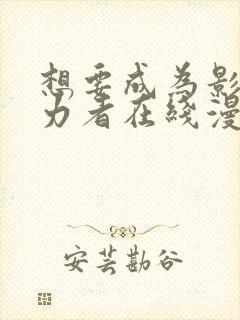 想要成为影
力者在线漫
安芸勘谷